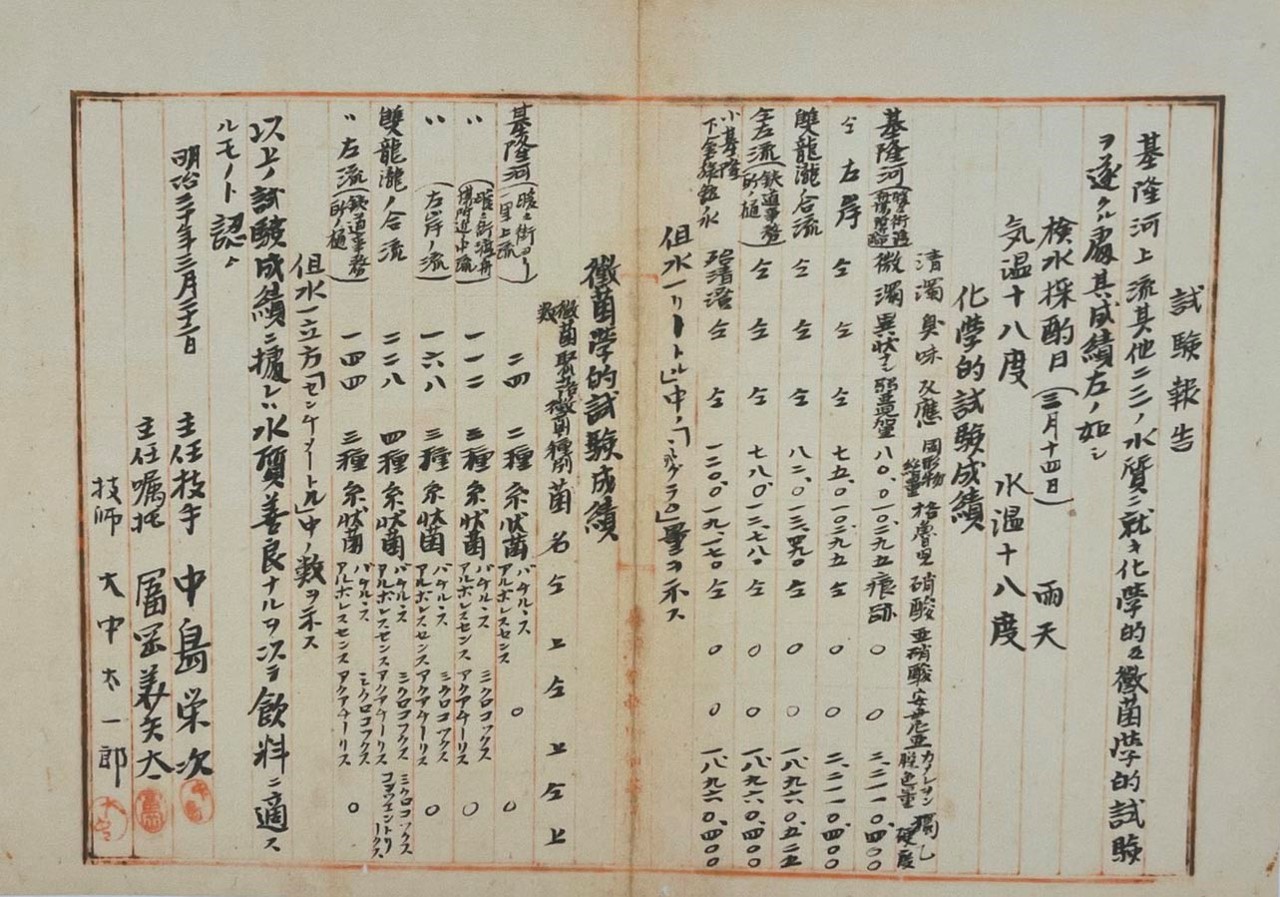 試験報告
基隆河上流其他二三ノ水質ニ就キ化学的及黴菌学的試験
ヲ遂クル處其成績左ノ如シ
検水採酌日(三月十四日) 雨天
気温十八度 水温十八度
化学的試験成績
清濁 臭味 反應 固形物総量 格魯児 硝酸 亜硝酸 安母尼亜 カメレオン脱色量 獨乙硬度
基隆河 微濁 異状ナシ 弱亜爾 八〇、〇 一〇、三九五 痕跡 〇 〇 二、二一一 〇、四〇〇
仝 左岸 仝 仝 仝 七五、〇 一〇、三九五 仝 〇 〇 二、二一一 〇、四〇〇
雙龍瀧ノ合流 仝 仝 仝 八二、〇 一三、四九〇 仝 〇 〇 一、八九六 〇、五二五
仝左流(鉄道事務所ノ樋) 仝 仝 仝 七八、〇 一二、七八〇 仝 〇 〇 一、八九六 〇、四〇〇
小基隆 仝 仝 一二〇、〇 一九、一七〇 仝 〇 〇 一、八九六 〇、四〇〇
但水一リートル」中ノ「ミリグラム」量ヲ示ス
黴菌学的試験成績
黴菌聚落数 黴菌種別 菌名 仝上 仝上 仝上
基隆河(暖々街ヨリ一里上流) 二四 二種 糸状菌 バチルスアルボレスセンス 〇 〇
〃 (暖々街渡舟場附近中流) 一一二 三種 糸状菌 バチルスアルボレスセンス ミクロコックスアクアチーリス 〇
〃 (左岸ノ流) 一六八 三種 糸状菌 バチルスアルボレスセンス ミクロコックスアクアチーリス 〇
雙龍瀧ノ合流 二二八 四種 糸状菌 バチルスアルボレスセンス ミクロコックスアクアチーリス ミクロコックス
〃左流(鉄道事務所ノ樋) 一四四 三種 糸状菌 バチルスアルボレスセンス ミクロコックスアクアチーリス 〇
但水一立方「センチメートル」中ノ数ヲ示ス
以上ノ試験成績ニ據レハ水質善良ナルヲ以テ飲料ニ適ス
ルモノト認ム
明治三十年三月二十二日
主任技手 中島栄次
主任嘱托 冨岡美矢太
技師 大中太一郎